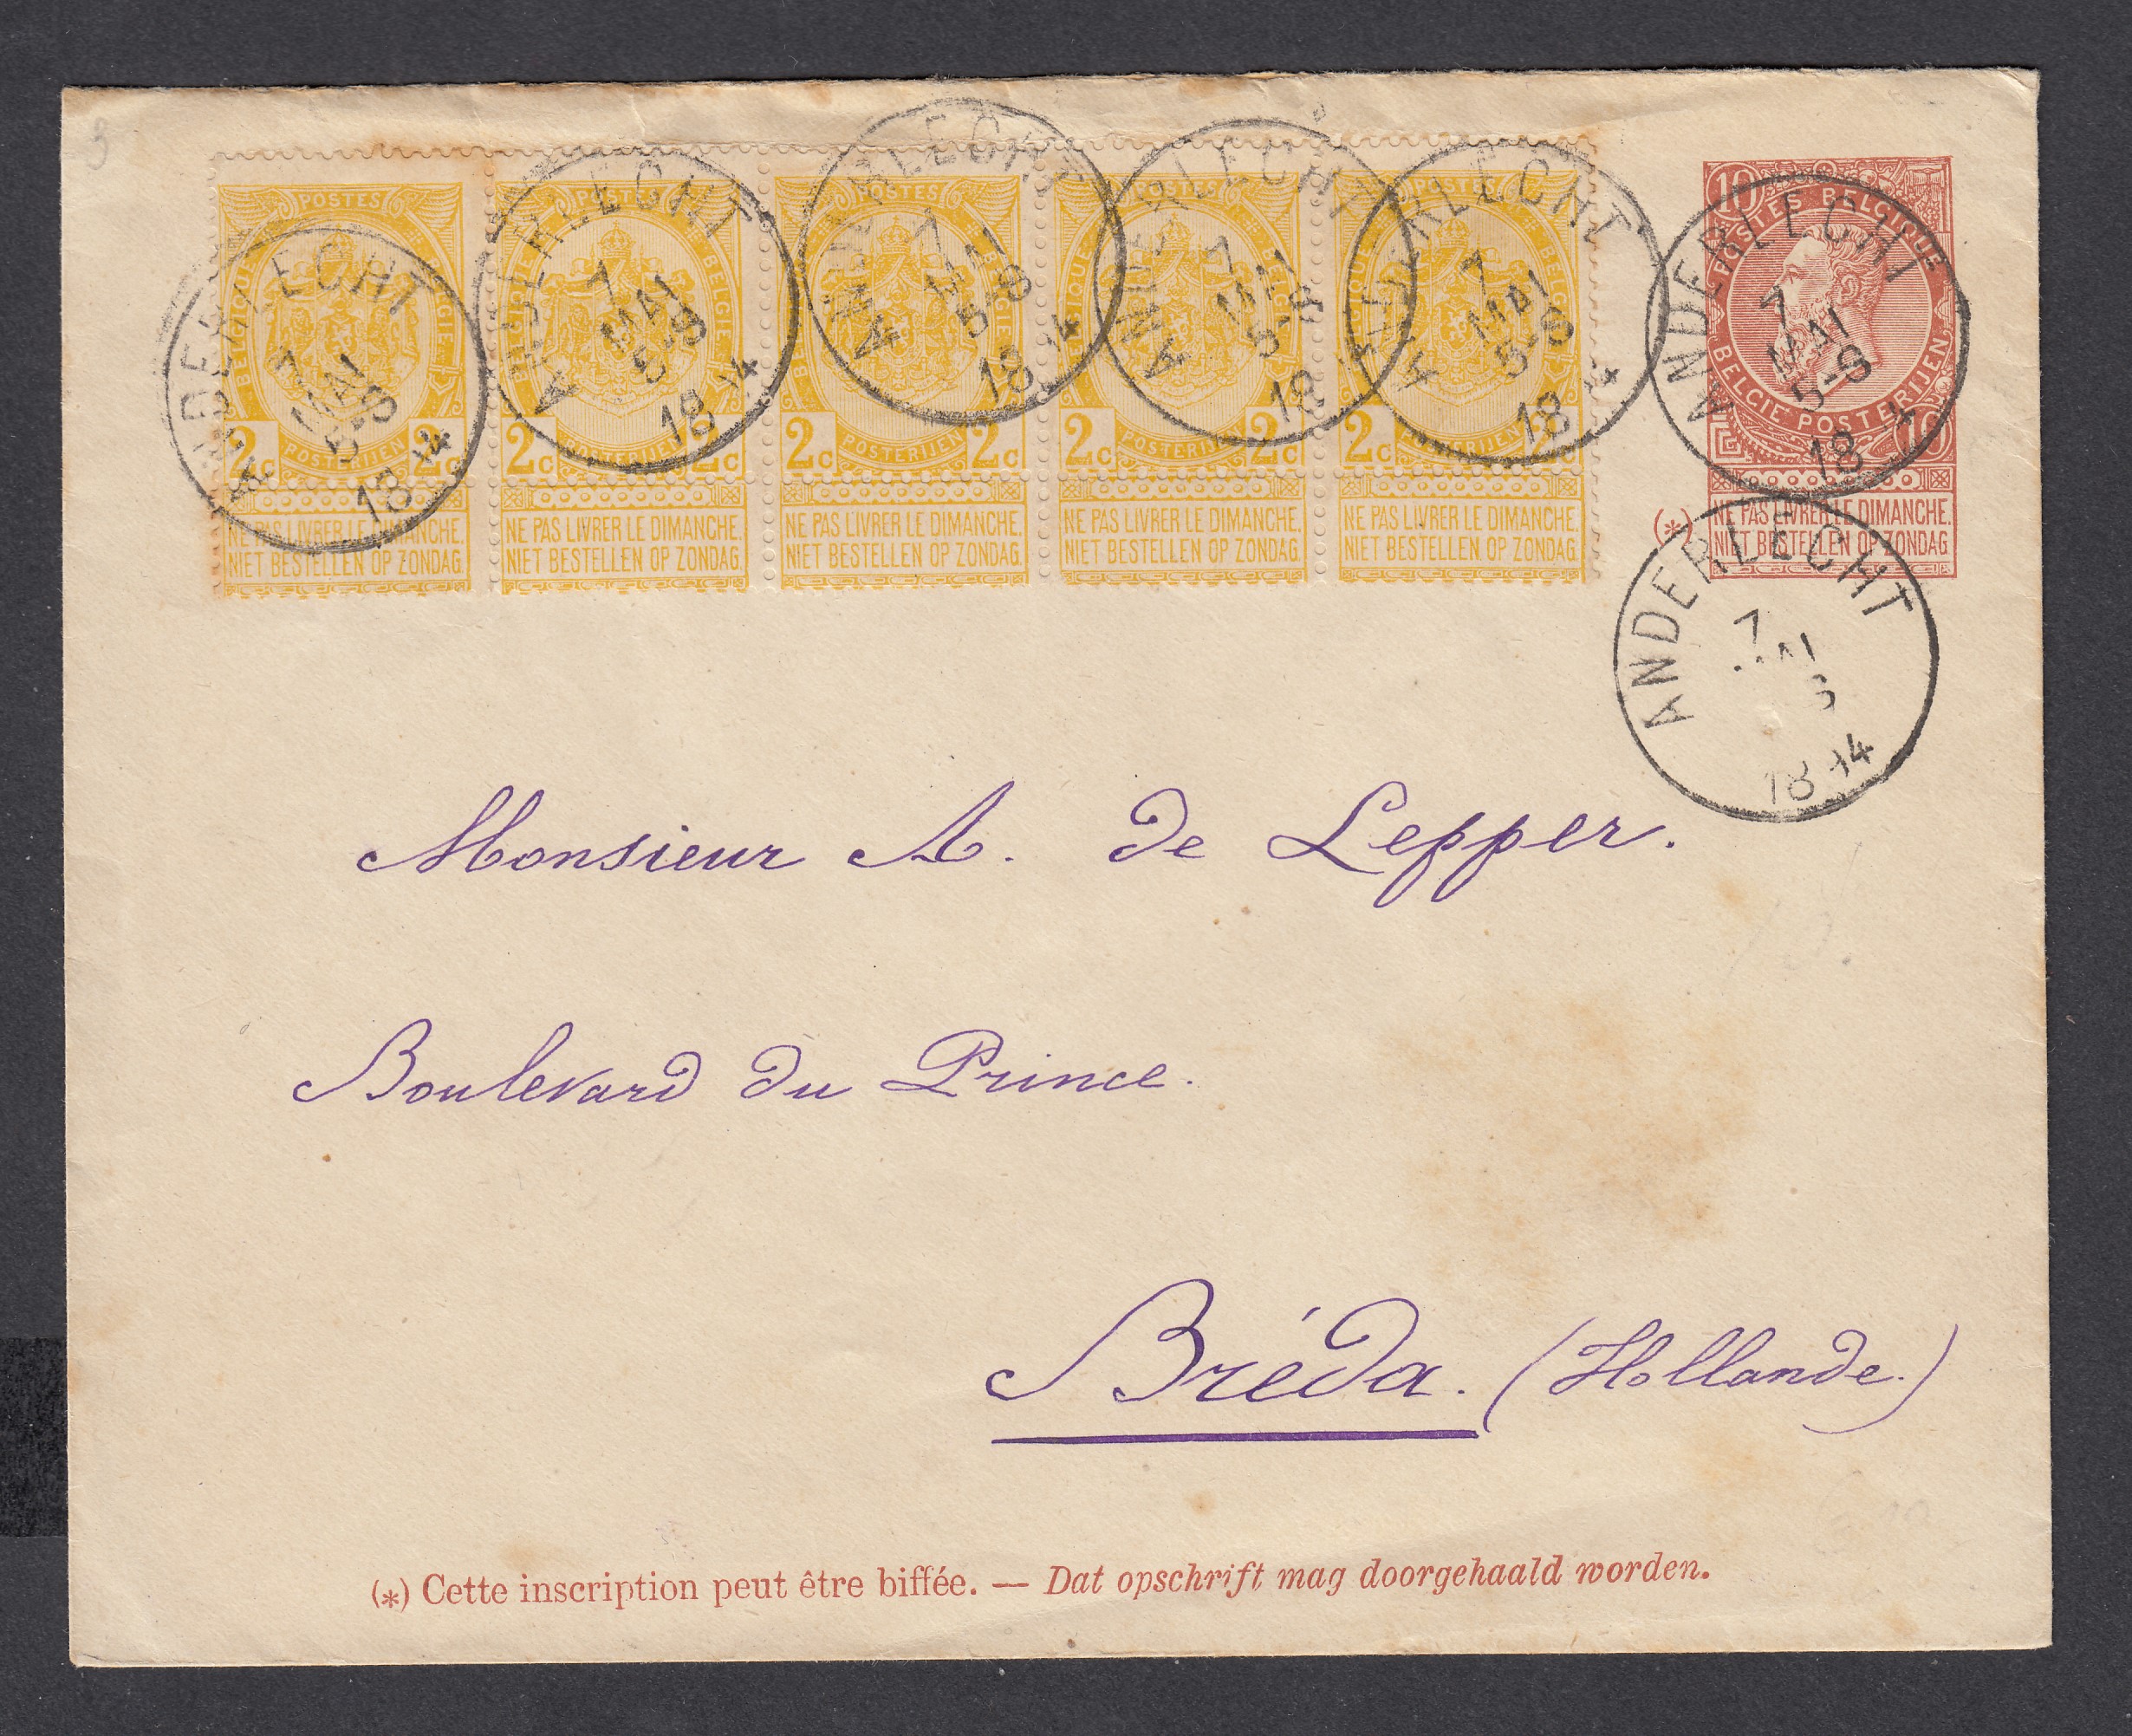 3
POSTES
BELGIQUE BELGIE
2c POSTERIJEN 2c
NE PAS LIVRER LE DIMANCHE.
NIET BESTELLEN OP ZONDAG
POSTES
BELGIQUE BELGIE
2c POSTERIJEN 2c
NE PAS LIVRER LE DIMANCHE.
NIET BESTELLEN OP ZONDAG
POSTES
BELGIQUE BELGIE
2c POSTERIJEN 2c
NE PAS LIVRER LE DIMANCHE.
NIET BESTELLEN OP ZONDAG
POSTES
BELGIQUE BELGIE
2c POSTERIJEN 2c
NE PAS LIVRER LE DIMANCHE.
NIET BESTELLEN OP ZONDAG
POSTES
BELGIQUE BELGIE
2c POSTERIJEN 2c
NE PAS LIVRER LE DIMANCHE.
NIET BESTELLEN OP ZONDAG
ANDERLECHT
7
MAI
5-S
18 4
ANDERLECHT
7
MAI
5-S
18 4
ANDERLECHT
7
MAI
5-S
18 4
ANDERLECHT
7
MAI
5-S
18
ANDERLECHT
7
MAI
5-S
18 4
10
POSTES BELGIQUE
BELGIE POSTERIJEN
10
(*) NE PAS LIVRER LE DIMANCHE.
NIET BESTELLEN OP ZONDAG
ANDERLECHT
7
MAI
5-S
18 4
ANDERLECHT
7
MAI
18 4
Monsieur A. de Lepper.
Boulevard du Prince.
Bréda. (Hollande.)
(*) Cette inscription peut être biffée. — Dat opschrift mag doorgehaald worden.